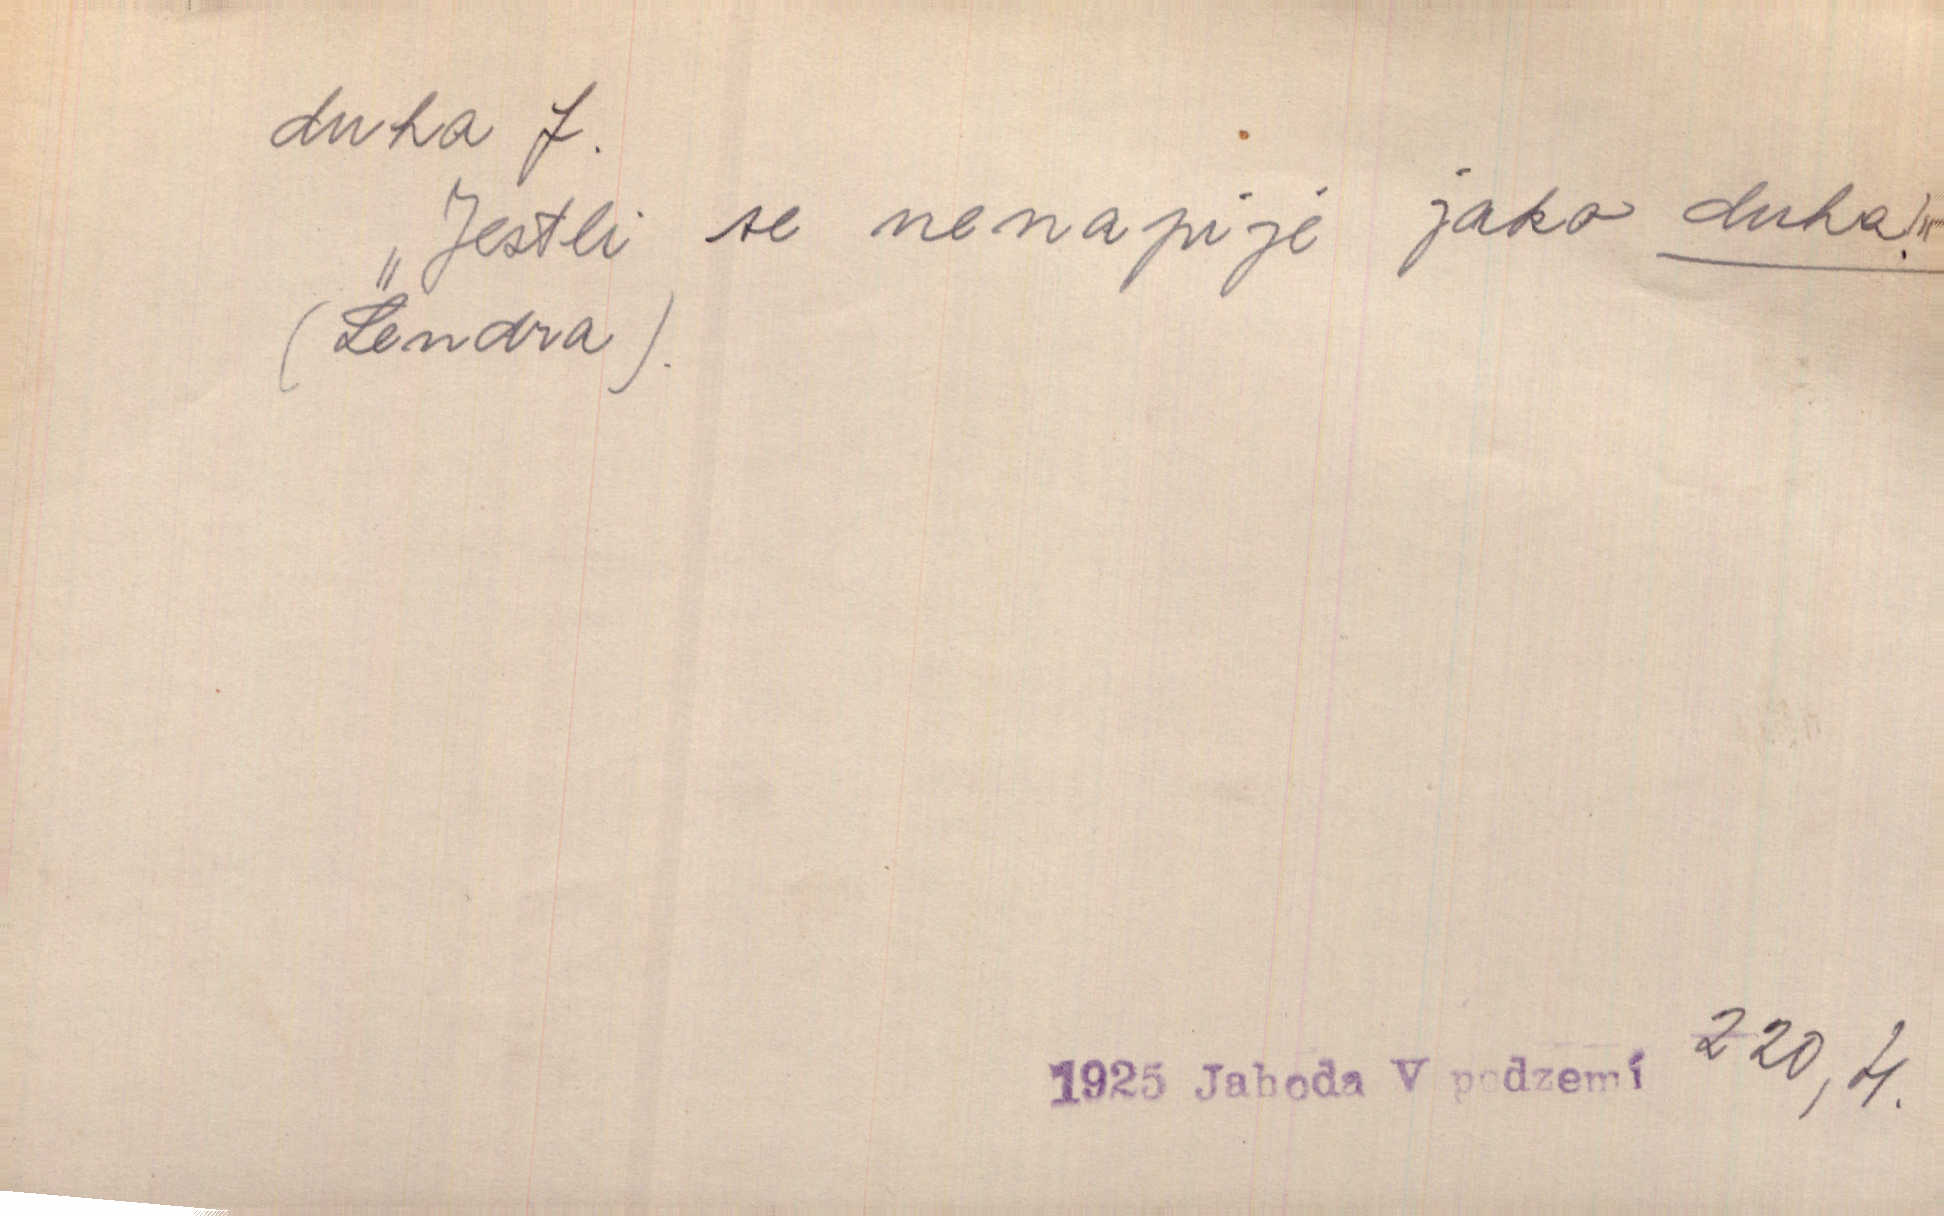 duha f.
„Jestli se nenapije jako duha!"
(Lendra).
1925 Jahoda V podzemí 220, 4.